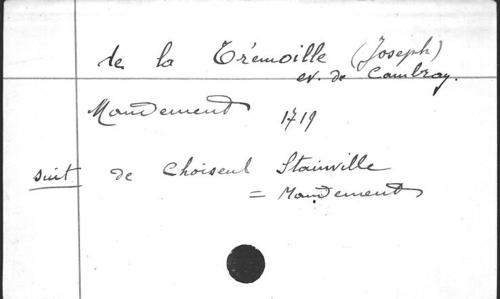 de la Trémoille (Joseph)
ev. de Cambray.
Mandement 1719
suit de Choiseul Stainville
= Mandement